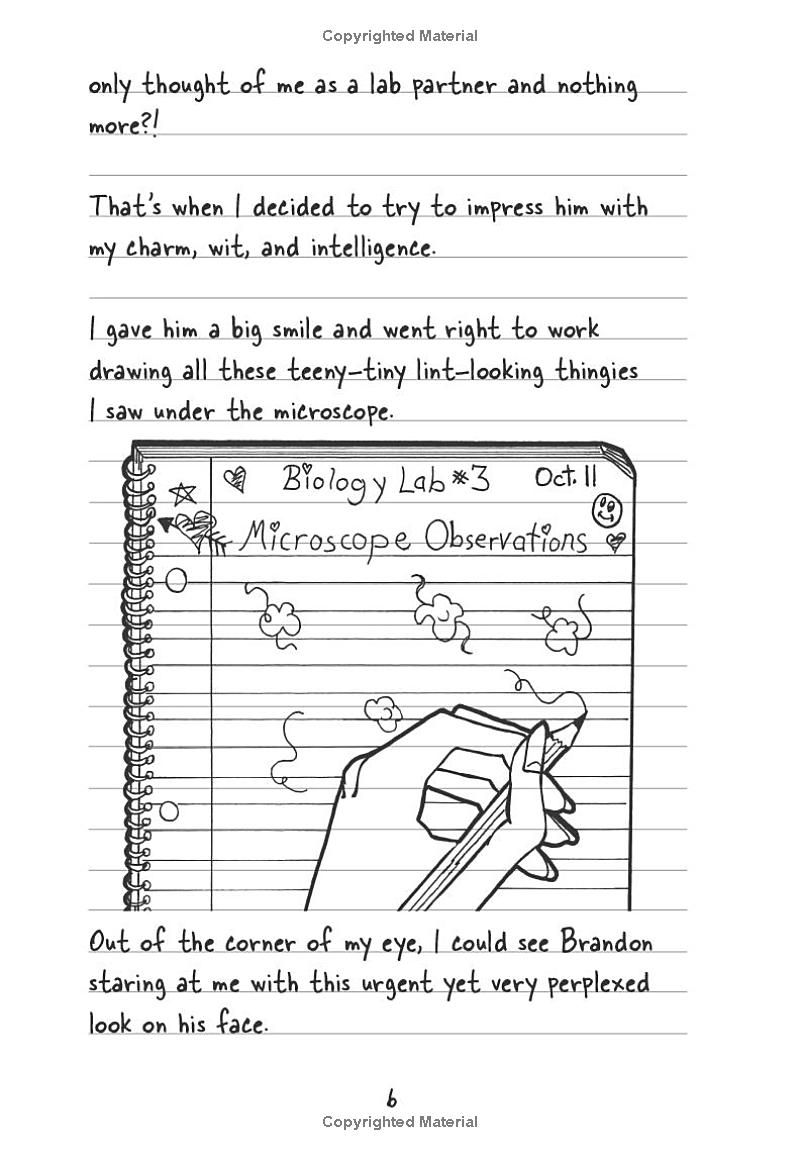 Copyrighted Material
only thought of me as a lab partner and nothing
more?!
That's when I decided to try to impress him with
my charm, wit, and intelligence.
I gave him a big smile and went right to work
drawing all these teeny-tiny lint-looking thingies
I saw under the microscope.
Biology Lab #3 Oct. 11
Microscope Observations
Out of the corner of my eye, I could see Brandon
staring at me with this urgent yet very perplexed
look on his face.
6
Copyrighted Material